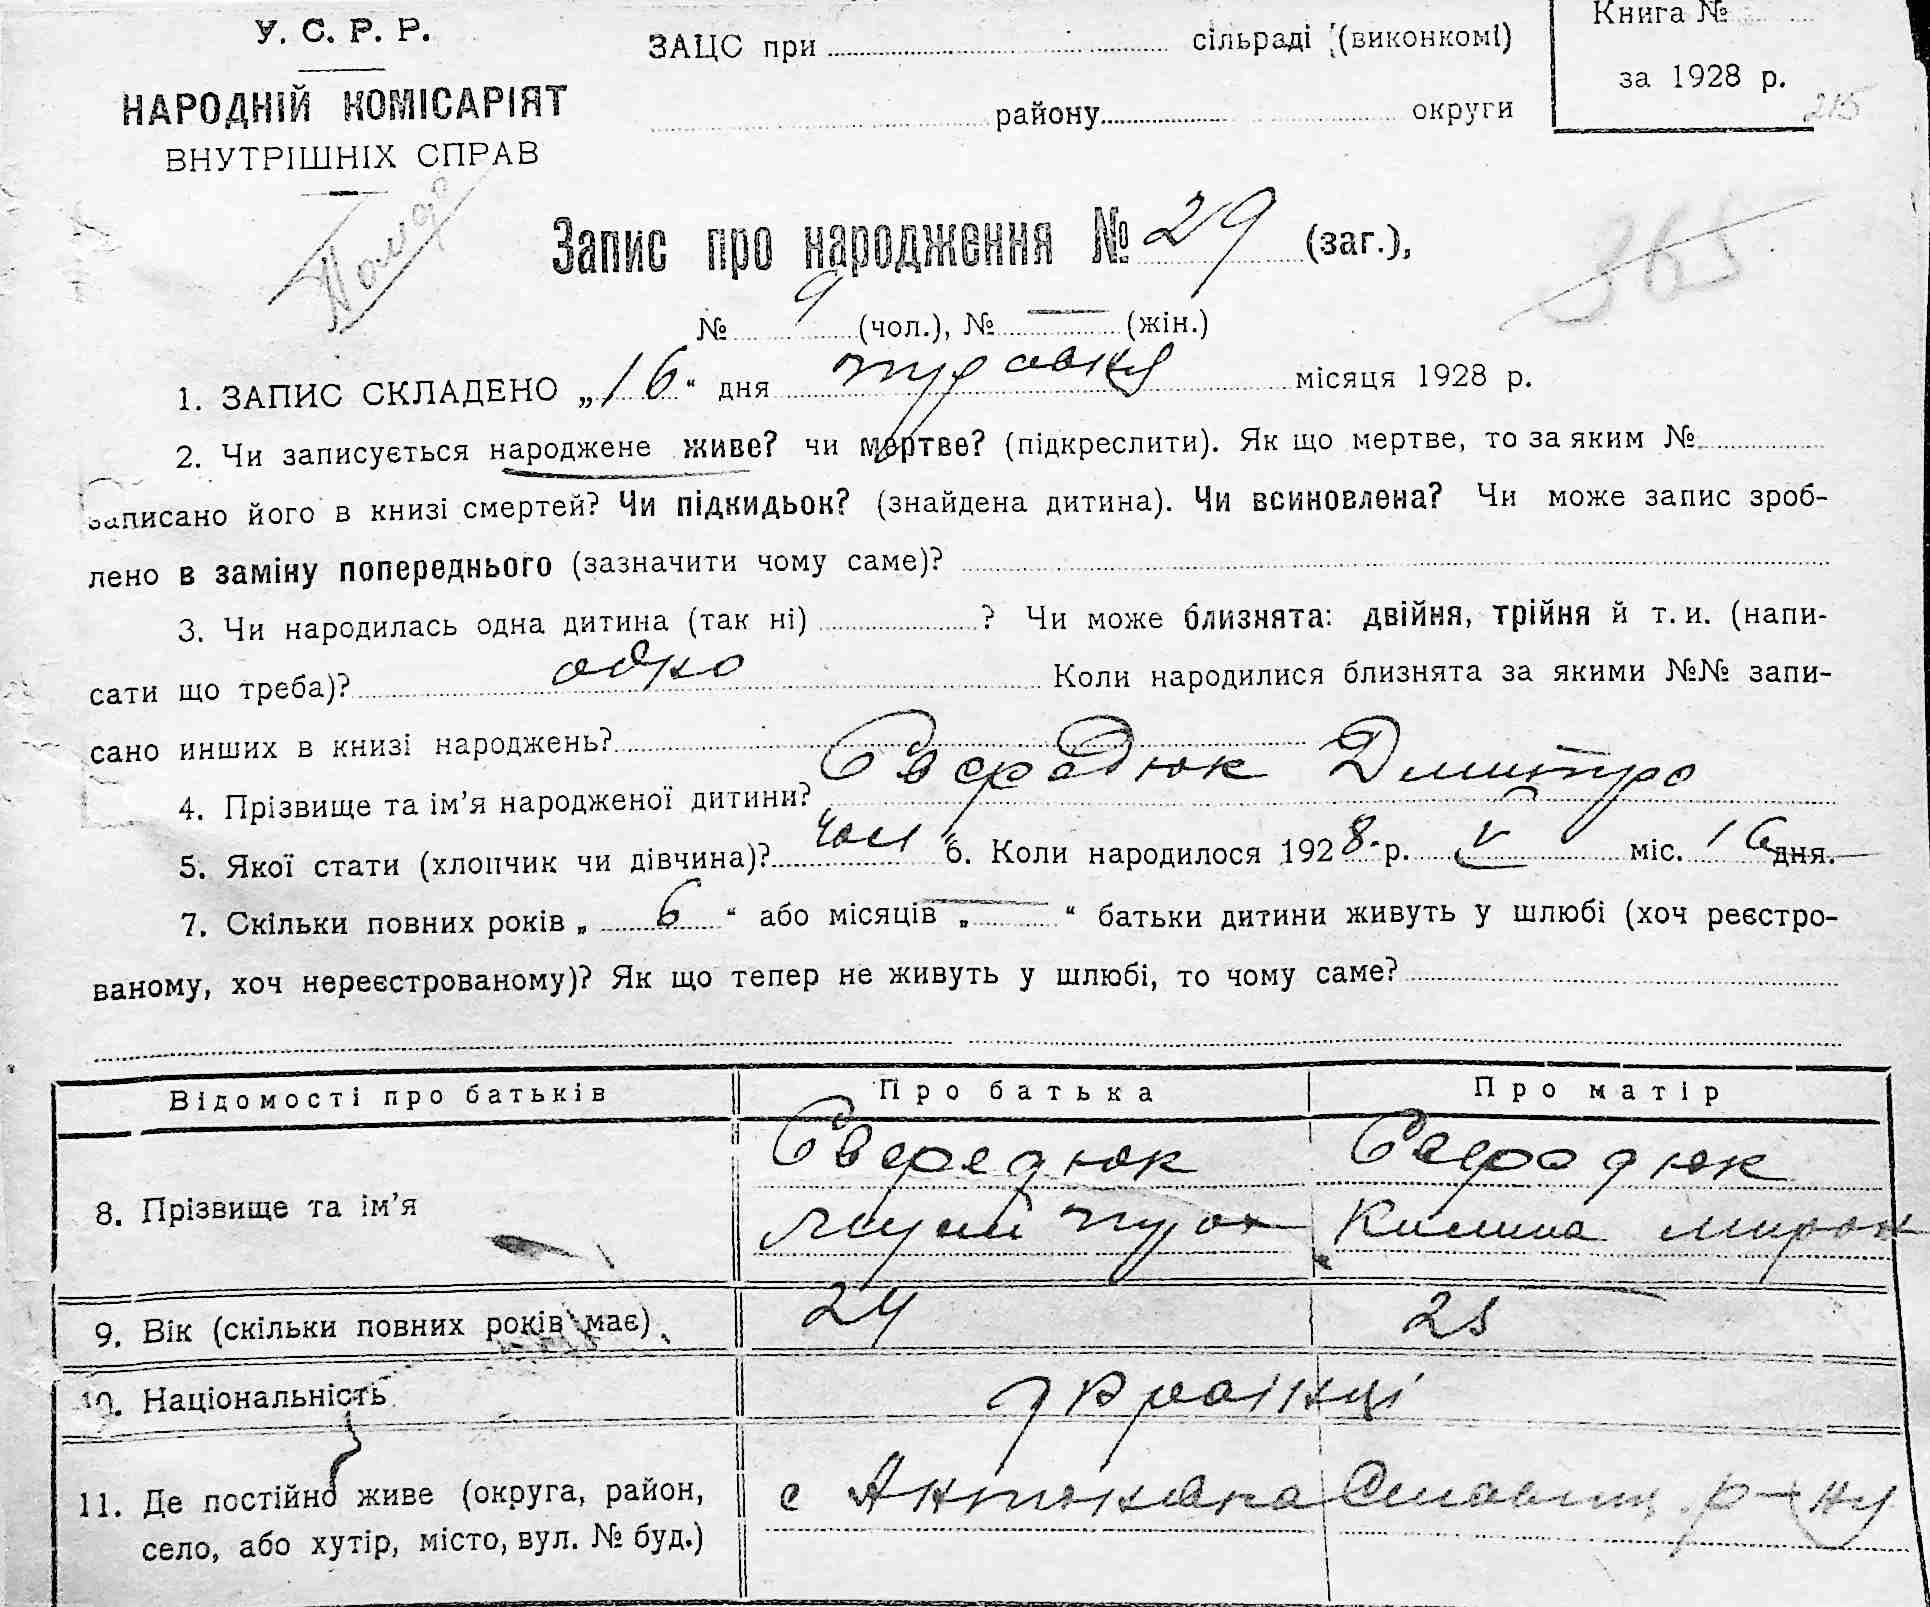 У. С. Р. Р.
НАРОДНІЙ КОМІСАРІЯТ
ВНУТРІШНІХ СПРАВ
ЗАЦС при сільраді (виконкомі)
району округи
Книга №
за 1928 р.
215
365
Запис про народження № 29 (заг.),
№ 9 (чол.), № — (жін.)
1. ЗАПИС СКЛАДЕНО „16“ дня травня місяця 1928 р.
2. Чи записується народжене живе? чи мертве? (підкреслити). Як що мертве, то за яким №
записано його в книзі смертей? Чи підкидьок? (знайдена дитина). Чи всиновлена? Чи може запис зроб-
лено в заміну попереднього (зазначити чому саме)?
3. Чи народилась одна дитина (так ні) ? Чи може близнята: двійня, трійня й т. и. (напи-
сати що треба)? одно Коли народилися близнята за якими №№ запи-
сано инших в книзі народжень?
4. Прізвище та ім’я народженої дитини? Свередюк Дмитро
5. Якої стати (хлопчик чи дівчина)? чол 6. Коли народилося 1928 р. V міс. 16 дня.
7. Скільки повних років „ 6 “ або місяців „ — “ батьки дитини живуть у шлюбі (хоч реєстро-
ваному, хоч нереєстрованому)? Як що тепер не живуть у шлюбі, то чому саме?
Відомості про батьків Про батька Про матір
8. Прізвище та ім’я
Свередюк Свередюк
Килина Мирон
9. Вік (скільки повних років має) 24 25
10. Національність українці
11. Де постійно живе (округа, район,
село, або хутір, місто, вул. № буд.)
с р-ну